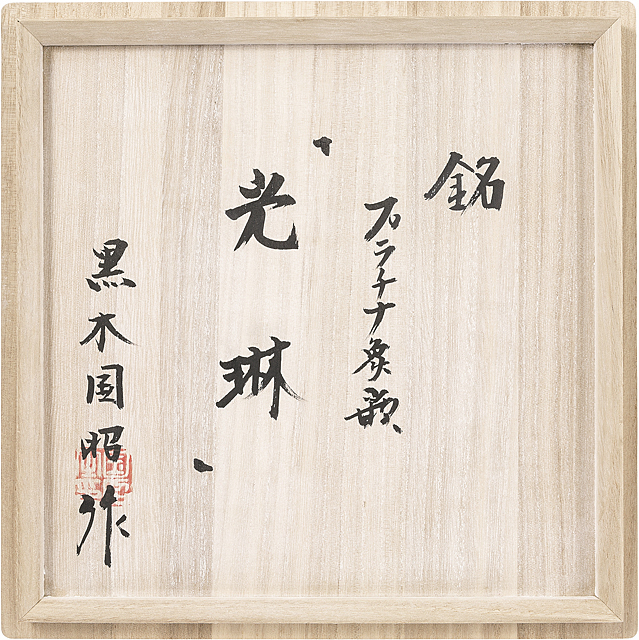 銘
プラチナ象嵌
「光琳」
黒木国昭作